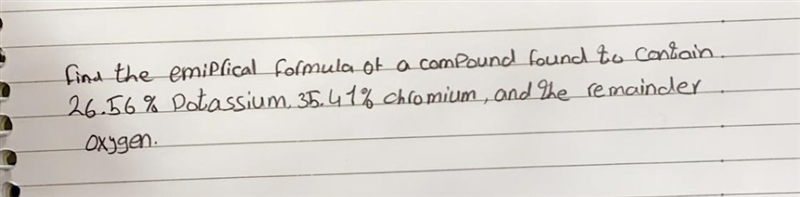 find the emiPrical formula of a comPound found to contain.
26.56% Potassium, 35.41% chromium, and the remainder
oxygen.